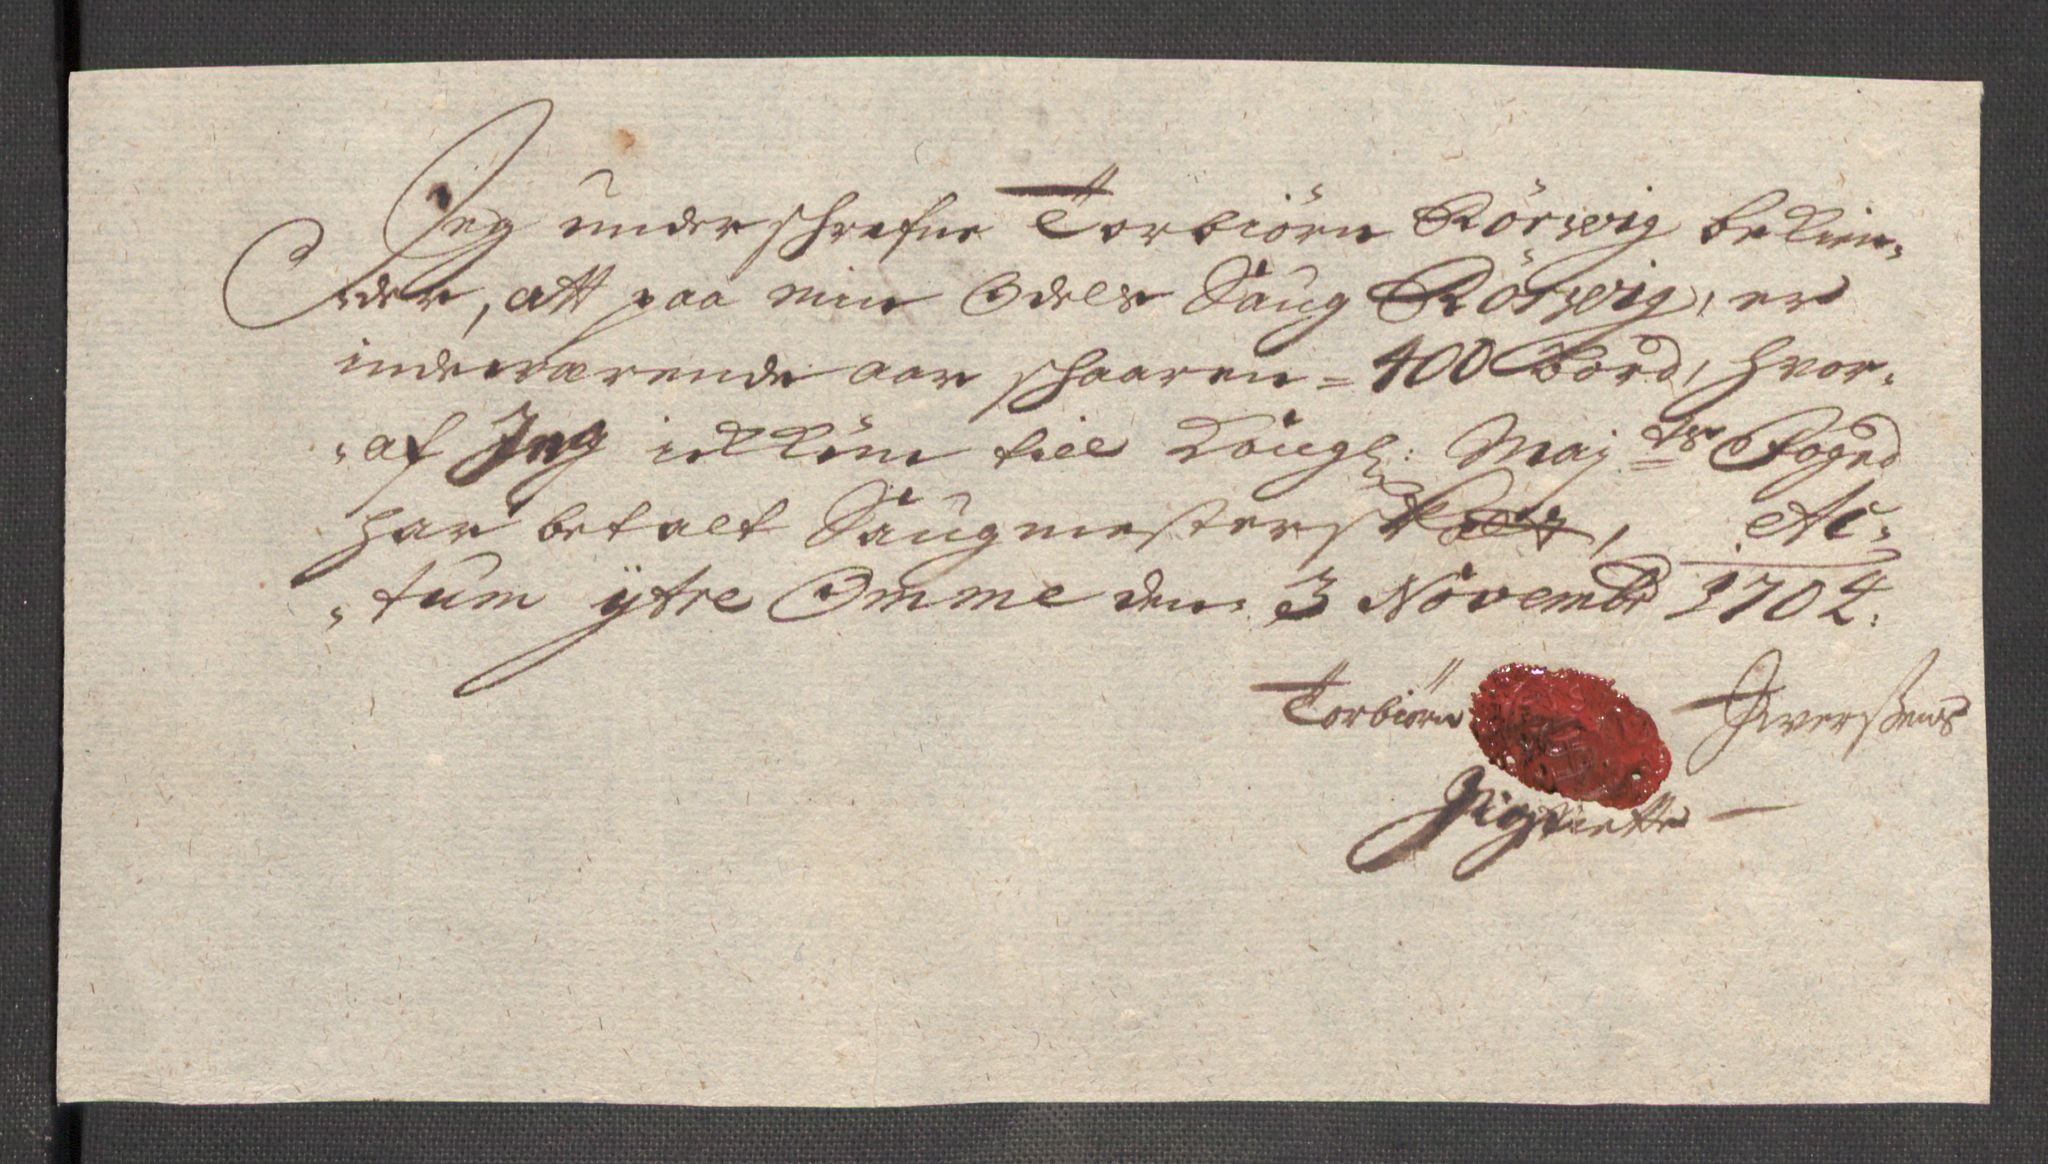 Jeg underschrefne Torbiörn Rörwig bekien-
der, att paa min Odels Saug Rörwig, er
indeværende aar schaaren = 400 Bord, hvor-
-af Jeg ickkun till Kongl: Maj:ts Foged
har betalt Saugmestersk, Ac-
-tum ÿtre Omme den 3 Novembr 1704:
Torbiörn Iverßens
Signette